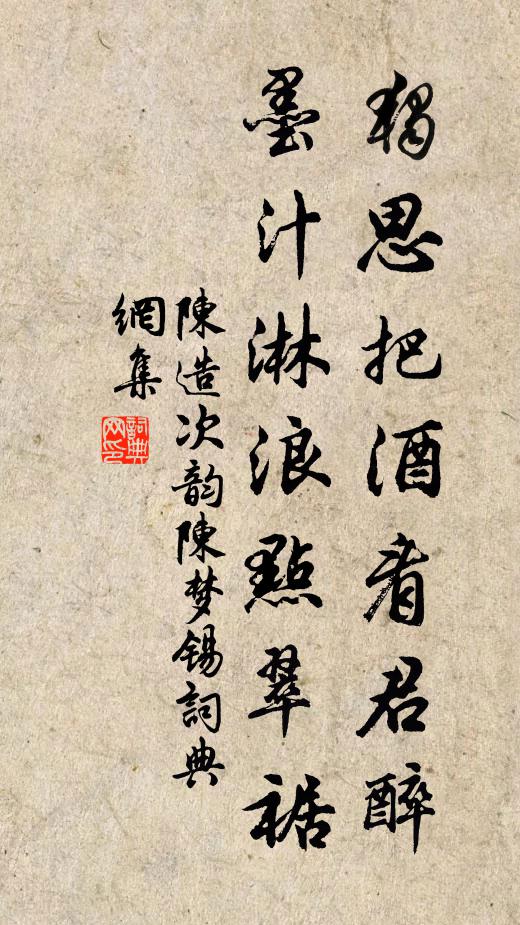 獨思把酒看君醉
墨汁淋浪點翠裾
陳造次韵陳梦锡詞典
網集
詞典
网印